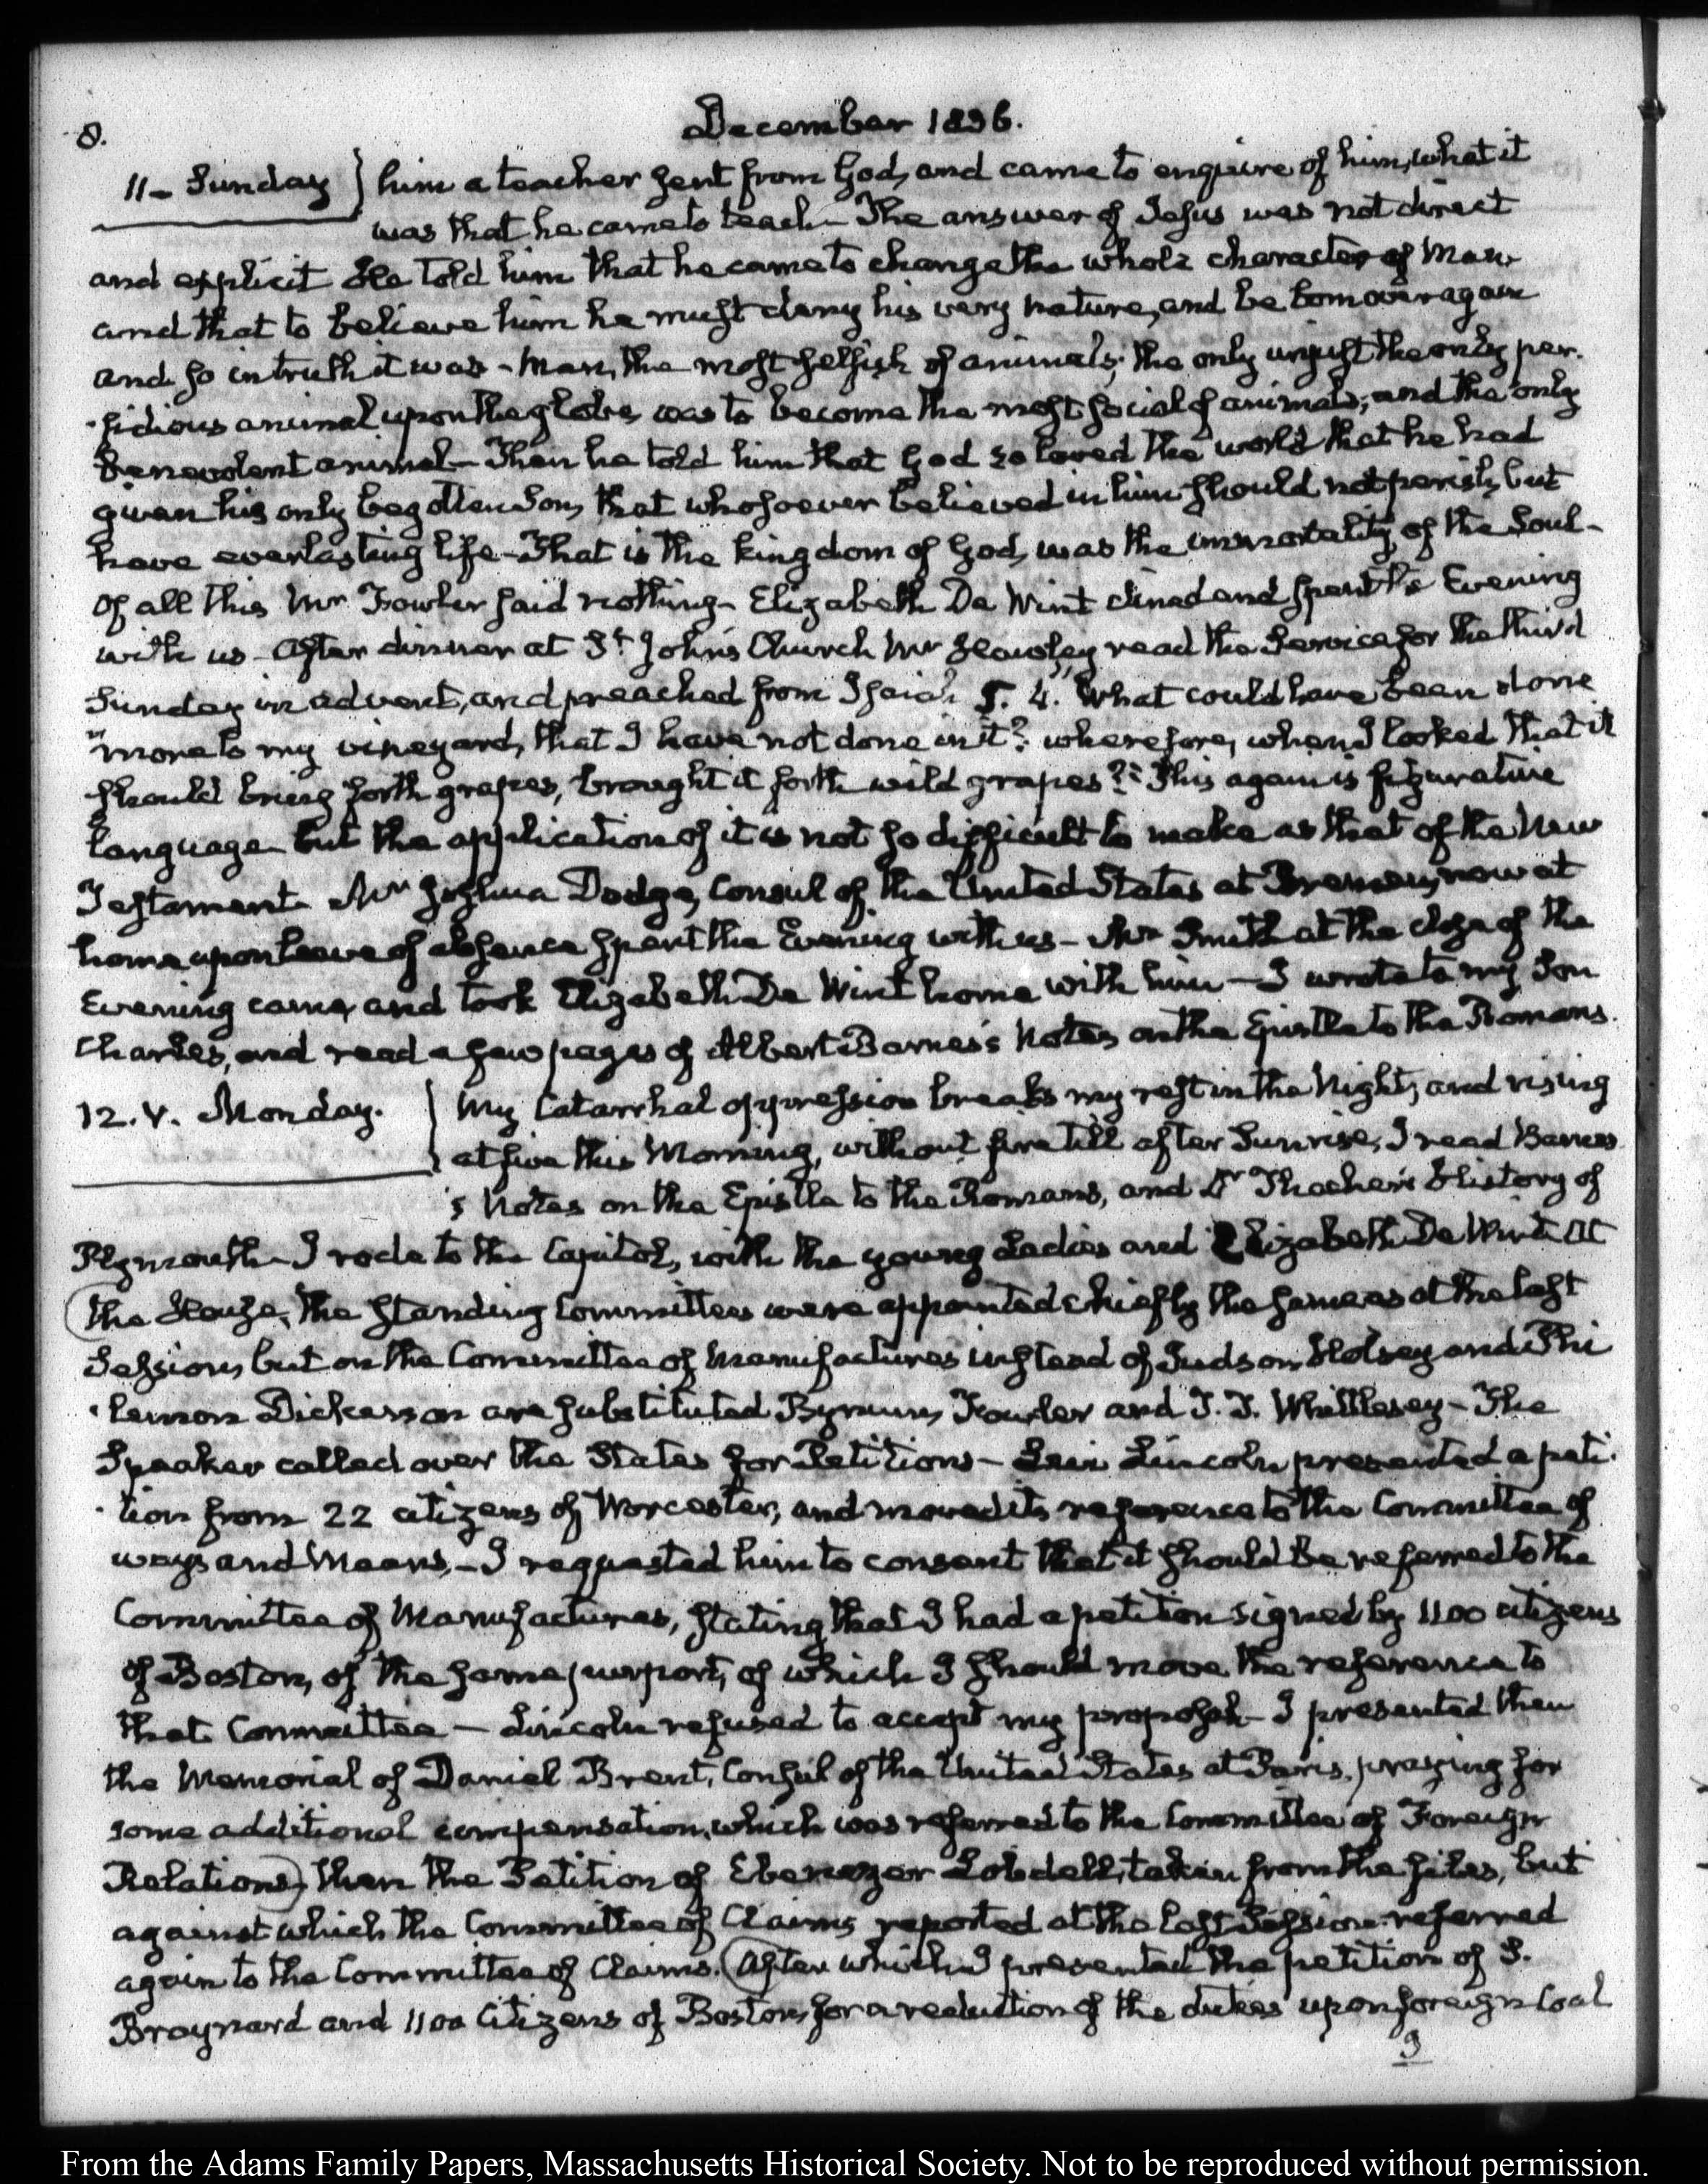 8.
December 1836.
11– Sunday } him a teacher sent from God, and came to enquire of him, what it
was that he came to teach – The answer of Jesus was not direct
and explicit He told him that he came to change the whole character of Man
and that to believe him he must deny his very nature, and be born over again
and so in truth it was – Man, the most selfish of animals; the only unjust the only per-
-fidious animal upon the globe, was to become the most social of animals; and the only
benevolent animal – Then he told him that God so loved the world that he had
given his only begotten Son, that whosoever believed in him should not perish, but
have everlasting life – That is the kingdom of God, was the immortality of the Soul –
of all this Mr Fowler said nothing – Elizabeth De Wint dined and spent the Evening
with us – After dinner at St John's Church Mr Hawley read the Service for the third
Sunday in advent, and preached from Isaiah 5. 4. "What could have been done
"more to my vineyard, that I have not done in it? wherefore, when I looked that it
should bring forth grapes, brought it forth wild grapes?" This again is figurative
language but the application of it is not so difficult to make as that of the New
Testament. Mr Joshua Dodge, Consul of the United States at Bremen, now at
home upon leave of absence spent the Evening with us – Mr Smith at the close of the
Evening came, and took Elizabeth De Wint home with him – I wrote to my Son
Charles, and read a few pages of Albert Barnes's Notes on the Epistle to the Romans.
12. V. Monday. } My Catarrhal oppression breaks my rest in the Night, and rising
at five this Morning, without fire till after Sunrise, I read Barnes
's Notes on the Epistle to the Romans, and Dr Thacher's History of
Plymouth – I rode to the Capitol, with the young Ladies and Elizabeth De Wint At
the House, the standing Committees were appointed chiefly the same as at the last
Session, but on the Committee of Manufactures instead of Judson, Holsey and Phi
-lemon Dickerson are substituted Bynum, Fowler and T. T. Whittlesey – The
Speaker called over the States for Petitions – Levi Lincoln presented a peti-
-tion from 22 citizens of Worcester, and moved its reference to the Committee of
ways and Means, – I requested him to consent that it should be referred to the
Committee of Manufactures, stating that I had a petition signed by 1100 citizens
of Boston, of the same purport, of which I should move the reference to
that Committee – Lincoln refused to accept my proposal – I presented then
the Memorial of Daniel Brent, Consul of the United States at Paris, praying for
some additional compensation, which was referred to the Committee of Foreign
Relations) then the Petition of Ebenezer Lobdell, taken from the files, but
against which the Committee of Claims reported at the last Session: referred
again to the Committee of Claims. (After which I presented the petition of S.
Braynard and 1100 Citizens of Boston, for a reduction of the duties upon foreign Coal
9
From the Adams Family Papers, Massachusetts Historical Society. Not to be reproduced without permission.